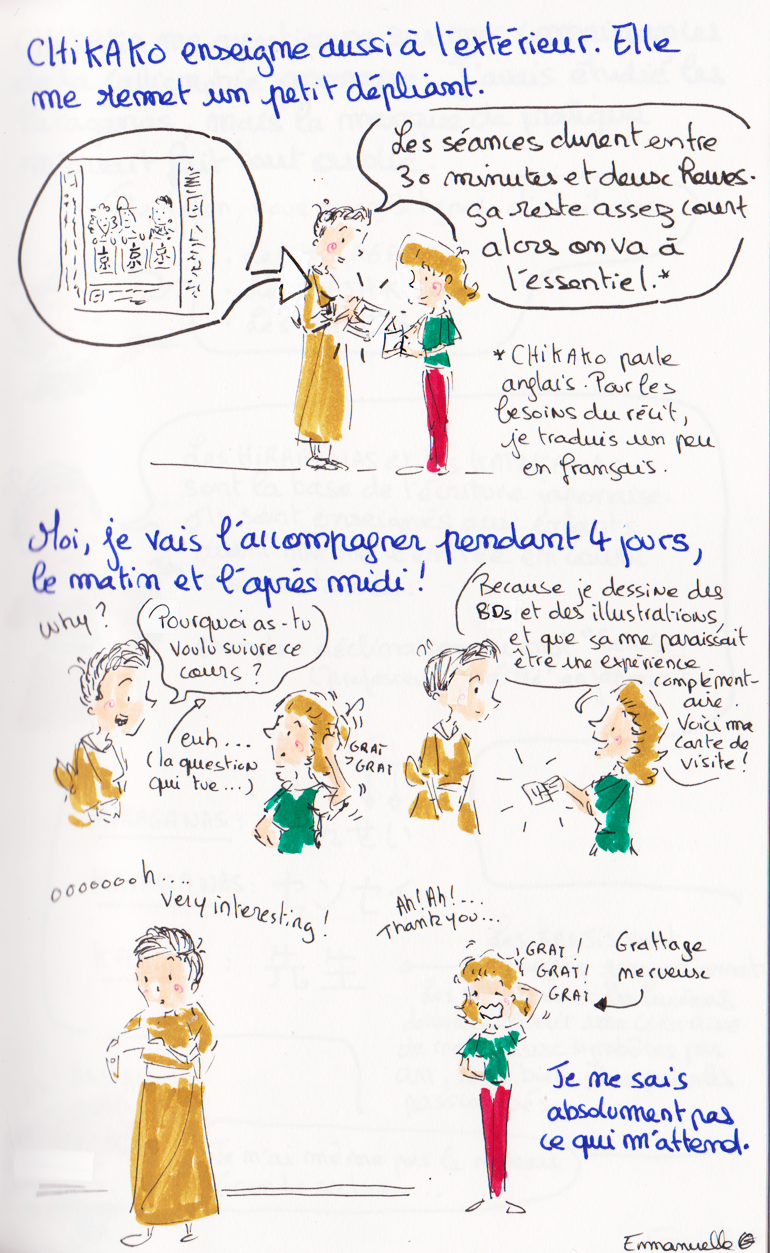 CHIKAKO enseigne aussi à l'extérieur. Elle
me remet un petit dépliant.
Les séances durent entre
30 minutes et deux heures.
ça reste assez court
alors on va à
l'essentiel.*
京 京 京
* CHIKAKO parle
anglais. Pour les
besoins du récit,
je traduis un peu
en français.
Moi, je vais l'accompagner pendant 4 jours,
le matin et l'après midi !
Why ?
Pourquoi as-tu
voulu suivre ce
cours ?
euh...
(la question
qui tue...)
GRAT
GRAT
Because je dessine des
BDs et des illustrations,
et que ça me paraissait
être une expérience
complément-
aire.
Voici ma
carte de
visite !
oooooooh....
Very interesting !
Ah! Ah!...
Thank you...
GRAT !
GRAT !
GRAT
Grattage
nerveuse
Je ne sais
absolument pas
ce qui m'attend.
Emmanuelle